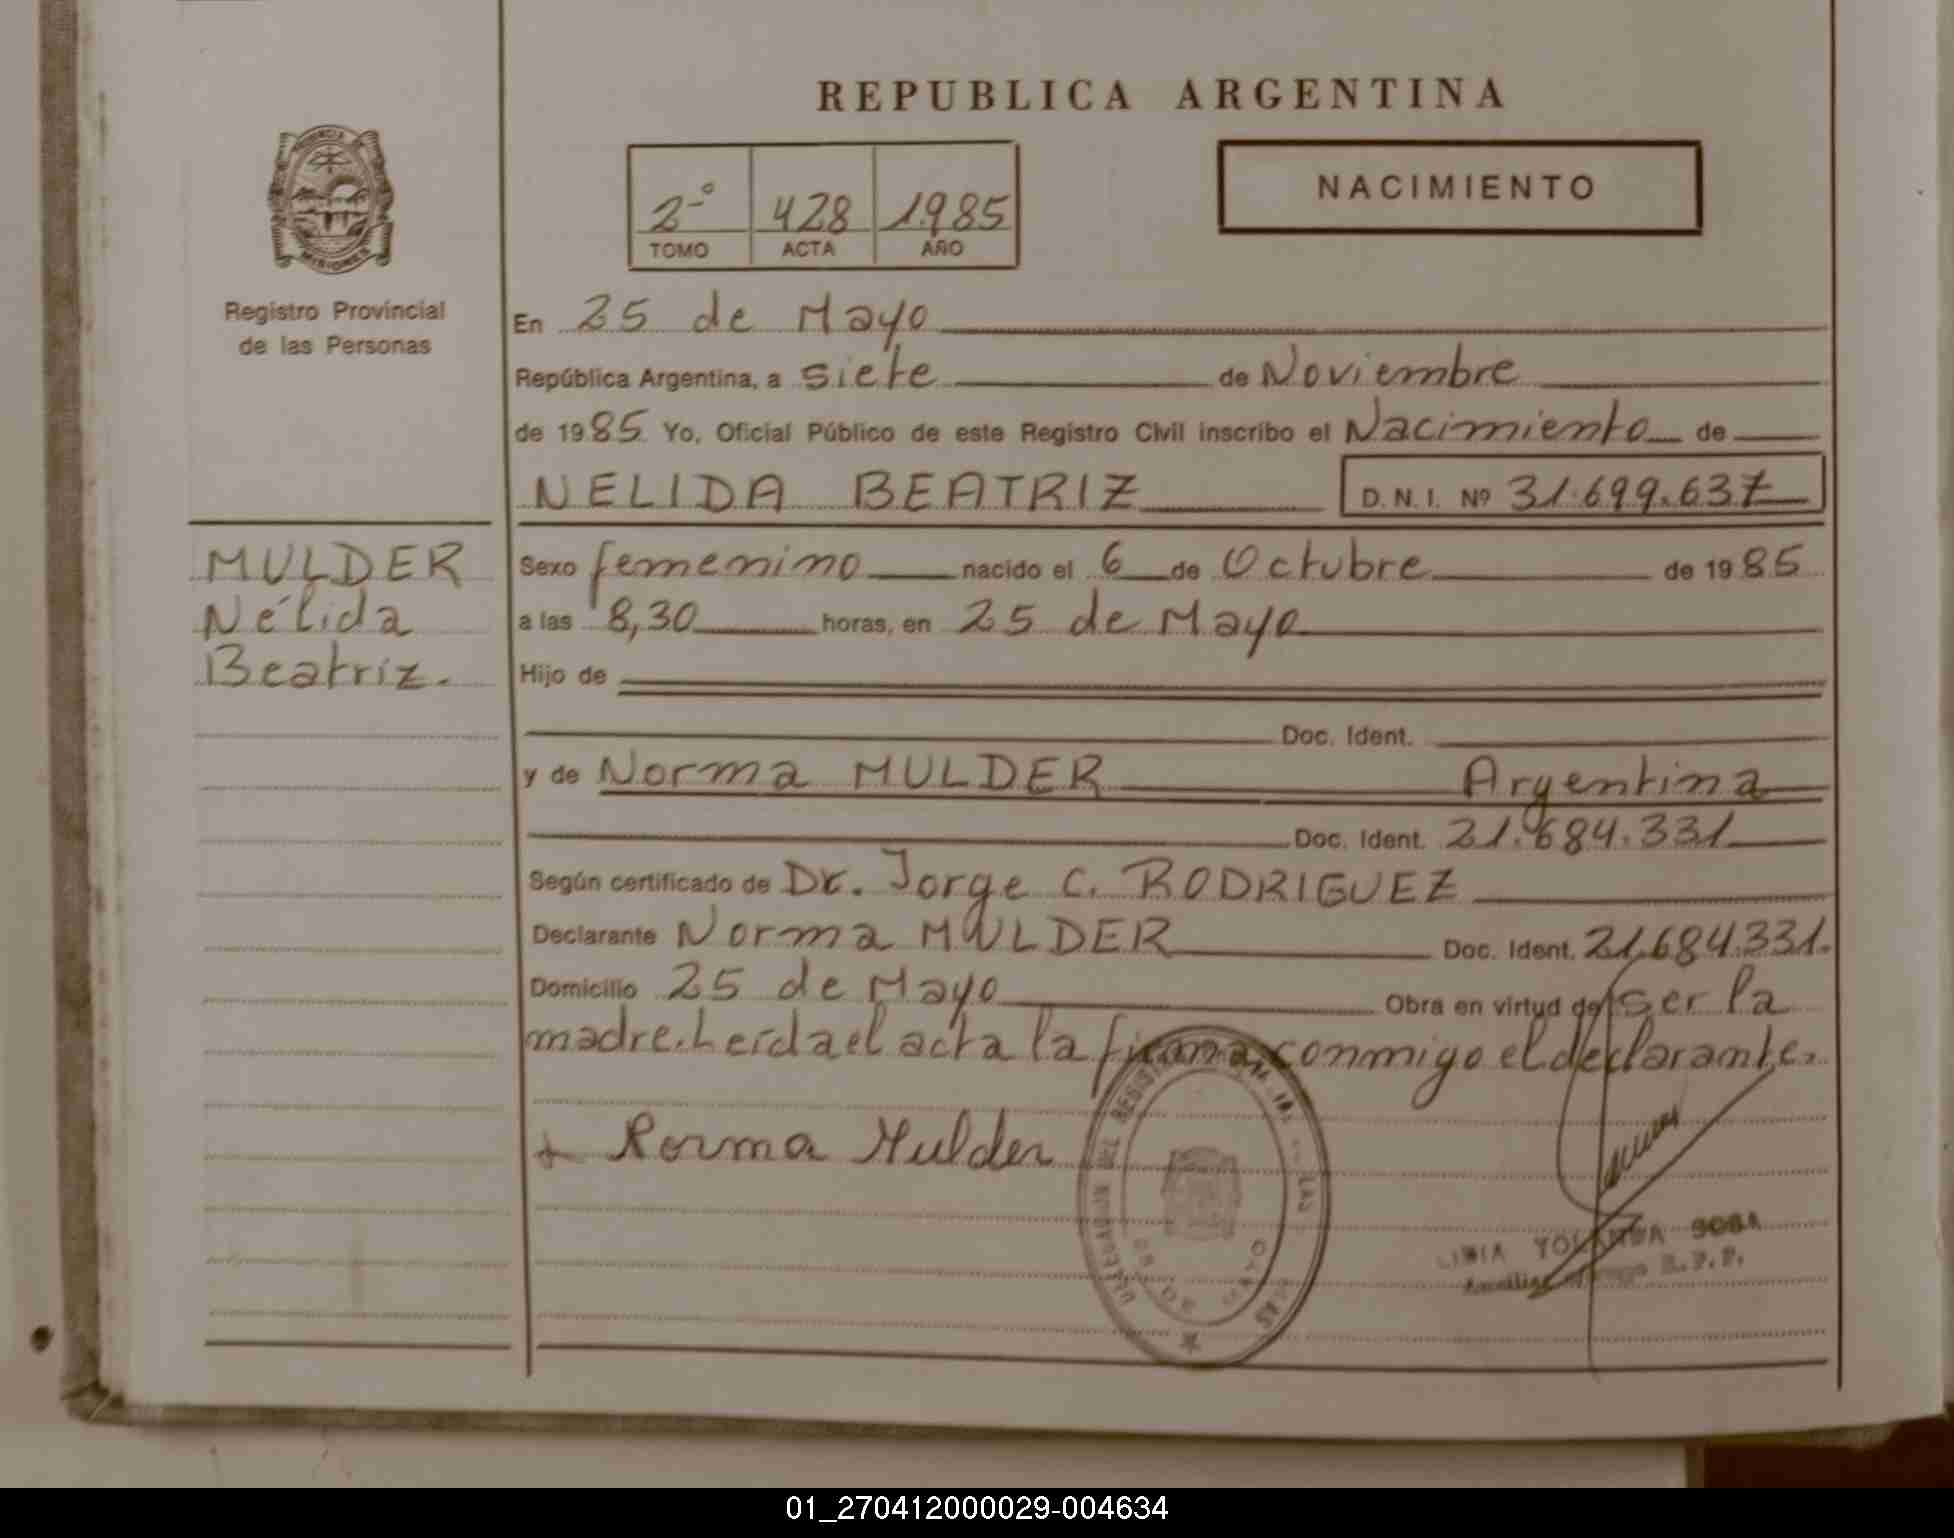 REPUBLICA ARGENTINA
PROVINCIA
MISIONES
2º 428 1985
TOMO ACTA AÑO
NACIMIENTO
Registro Provincial
de las Personas
En 25 de Mayo
República Argentina, a siete de Noviembre
de 1985 Yo, Oficial Público de este Registro Civil inscribo el Nacimiento de
NELIDA BEATRIZ D.N.I. Nº 31.699.637
MULDER
Nélida
Beatriz.
Sexo femenino nacido el 6 de Octubre de 1985
a las 8,30 horas, en 25 de Mayo
Hijo de
Doc. Ident.
y de Norma MULDER Argentina
Doc. Ident. 21.684.331
Según certificado de Dr. Jorge C. RODRIGUEZ
Declarante Norma MULDER Doc. Ident. 21.684.331.
Domicilio 25 de Mayo Obra en virtud de ser la
madre. Leída el acta la firma conmigo el declarante.
Norma Mulder
DELEGACION DEL
LIBIA YOLANDA SOSA
R.P.P.
01_270412000029-004634